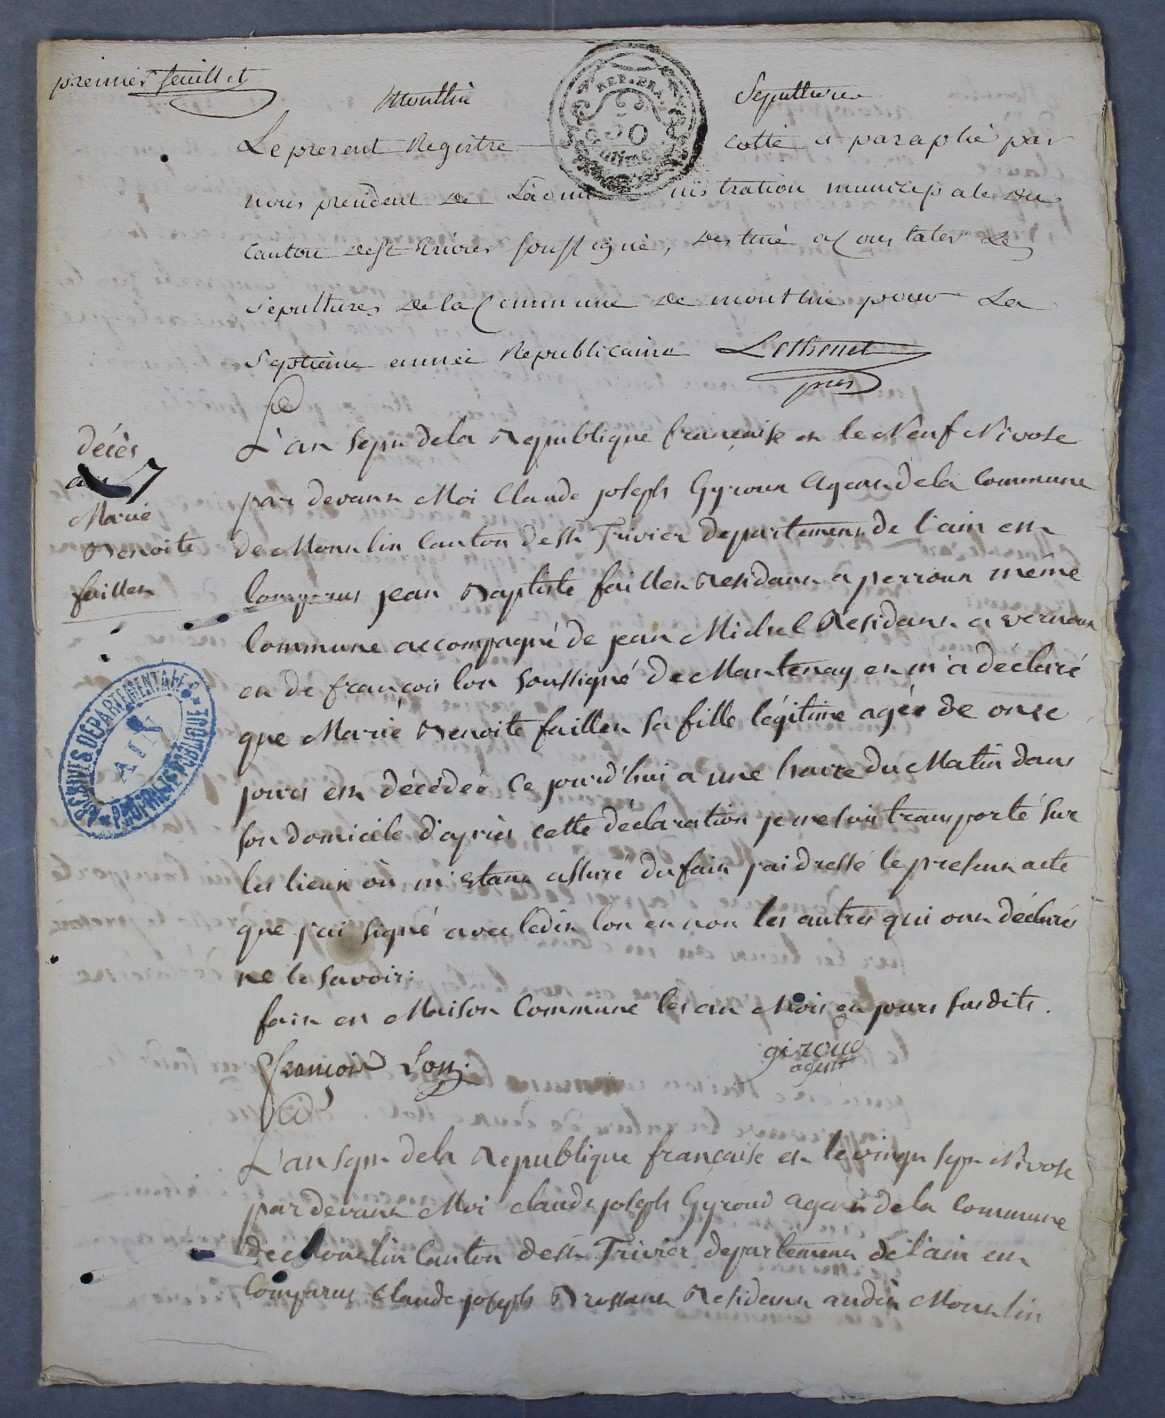 premier feuillet
Montlin Sepultures
REP. FRA.
50
Le present Registre cotté et paraphé par
nous president de L'administration municipale du
Canton de St Trivier soussigné, destiné a Constater les
sepultures de la Commune de montlin pour La
Septieme année Republicaine
pres
L'an sept de la Republique française et le Neuf Nivose
par devant Moi Claude joseph Gyrout Agent de la Commune
de Montlin Canton de St Trivier departement de l'ain est
Comparus jean Baptiste faillet Residant a perroux même
Commune accompagné de jean Michel Residant a vernoux
et de françois lon soussigné de Mantenay et m'a déclaré
que Marie Benoite faillet sa fille légitime agée de onze
jours est décédée ce jourd'hui a une heure du Matin dans
son domicile d'après cette déclaration je me suis transporté sur
les lieux où m'etant assuré du fait j'ai dressé le present acte
que j'ai signé avec ledit lon et non les autres qui ont déclarés
ne le savoir;
fait en Maison Commune les an Mois et jours susdits.
françois Lon giroud
agent
décès
Marie
Benoite
faillet
ARCHIVES DEPARTEMENTALES
AIN
PROPRIETE PUBLIQUE
L'an sept de la Republique française et le vingt sept Nivose
par devant Moi claude joseph Gyroud agent de la Commune
de Montlin Canton de St Trivier departement de l'ain est
Comparus Claude joseph Brossant Residant audit Montlin